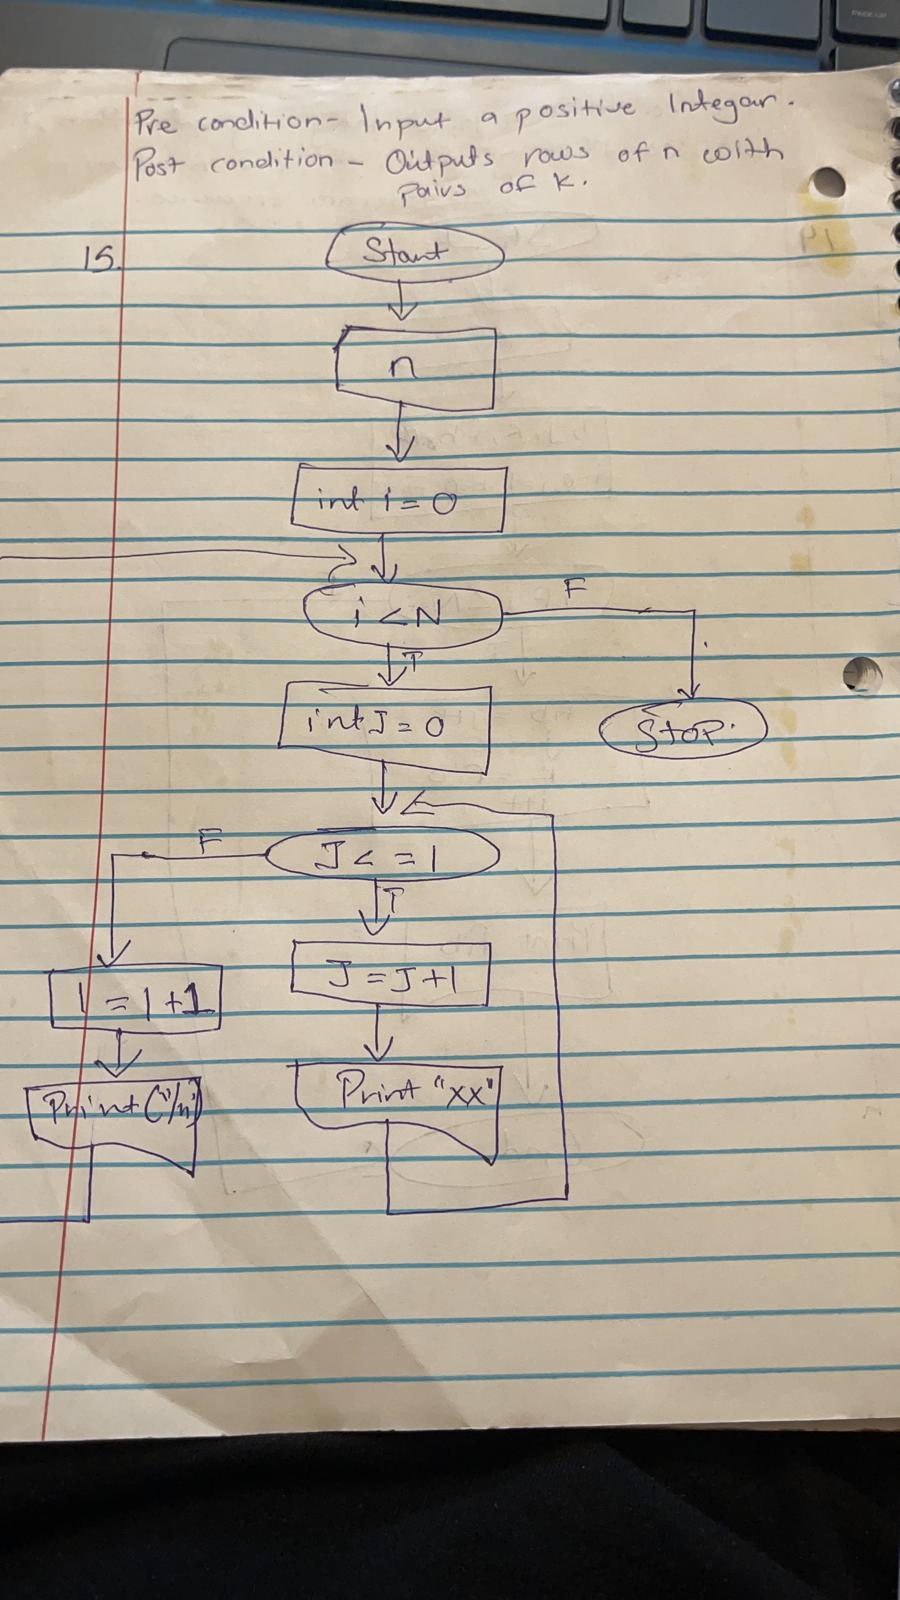 Pre condition - Input a positive Integar.
Post condition - Outputs rows of n with
pairs of k.
15.
Start
n
int i = 0
i < N
F
T
int J = 0
Stop.
J < = 1
F
T
J = J + 1
I = I + 1
Print "xx"
Print("/n")